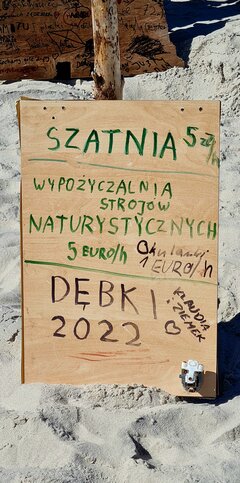 SZATNIA 5zł/h
WYPOŻYCZALNIA
STROJÓW
NATURYSTYCZNYCH
5 EURO/h
1 EURO/h
DĘBKI
2022
KLAUDIA
ZIEMEK